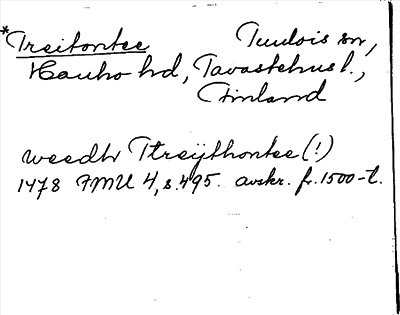 *Treitontee Tuulois sn,
Hauho hd, Tavastehus l.,
Finland
weedh Ttreijthontee (!)
1478 FMU 4, s. 495. avskr. fr. 1500-t.